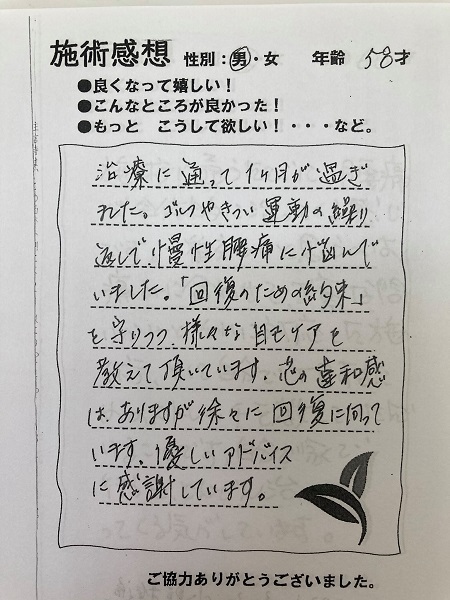 施術感想 性別：男・女 年齢 58才
●良くなって嬉しい！
●こんなところが良かった！
●もっと こうして欲しい！・・・など。
治療に通って1ヶ月が過ぎ
ました。ゴルフやきつい運動の繰り
返しで、慢性腰痛に悩んで
いました。「回復のための約束」
を守りつつ、様々な自宅ケアを
教えて頂いています。芯の違和感
は、ありますが徐々に回復に向って
います。優しいアドバイス
に感謝しています。
ご協力ありがとうございました。